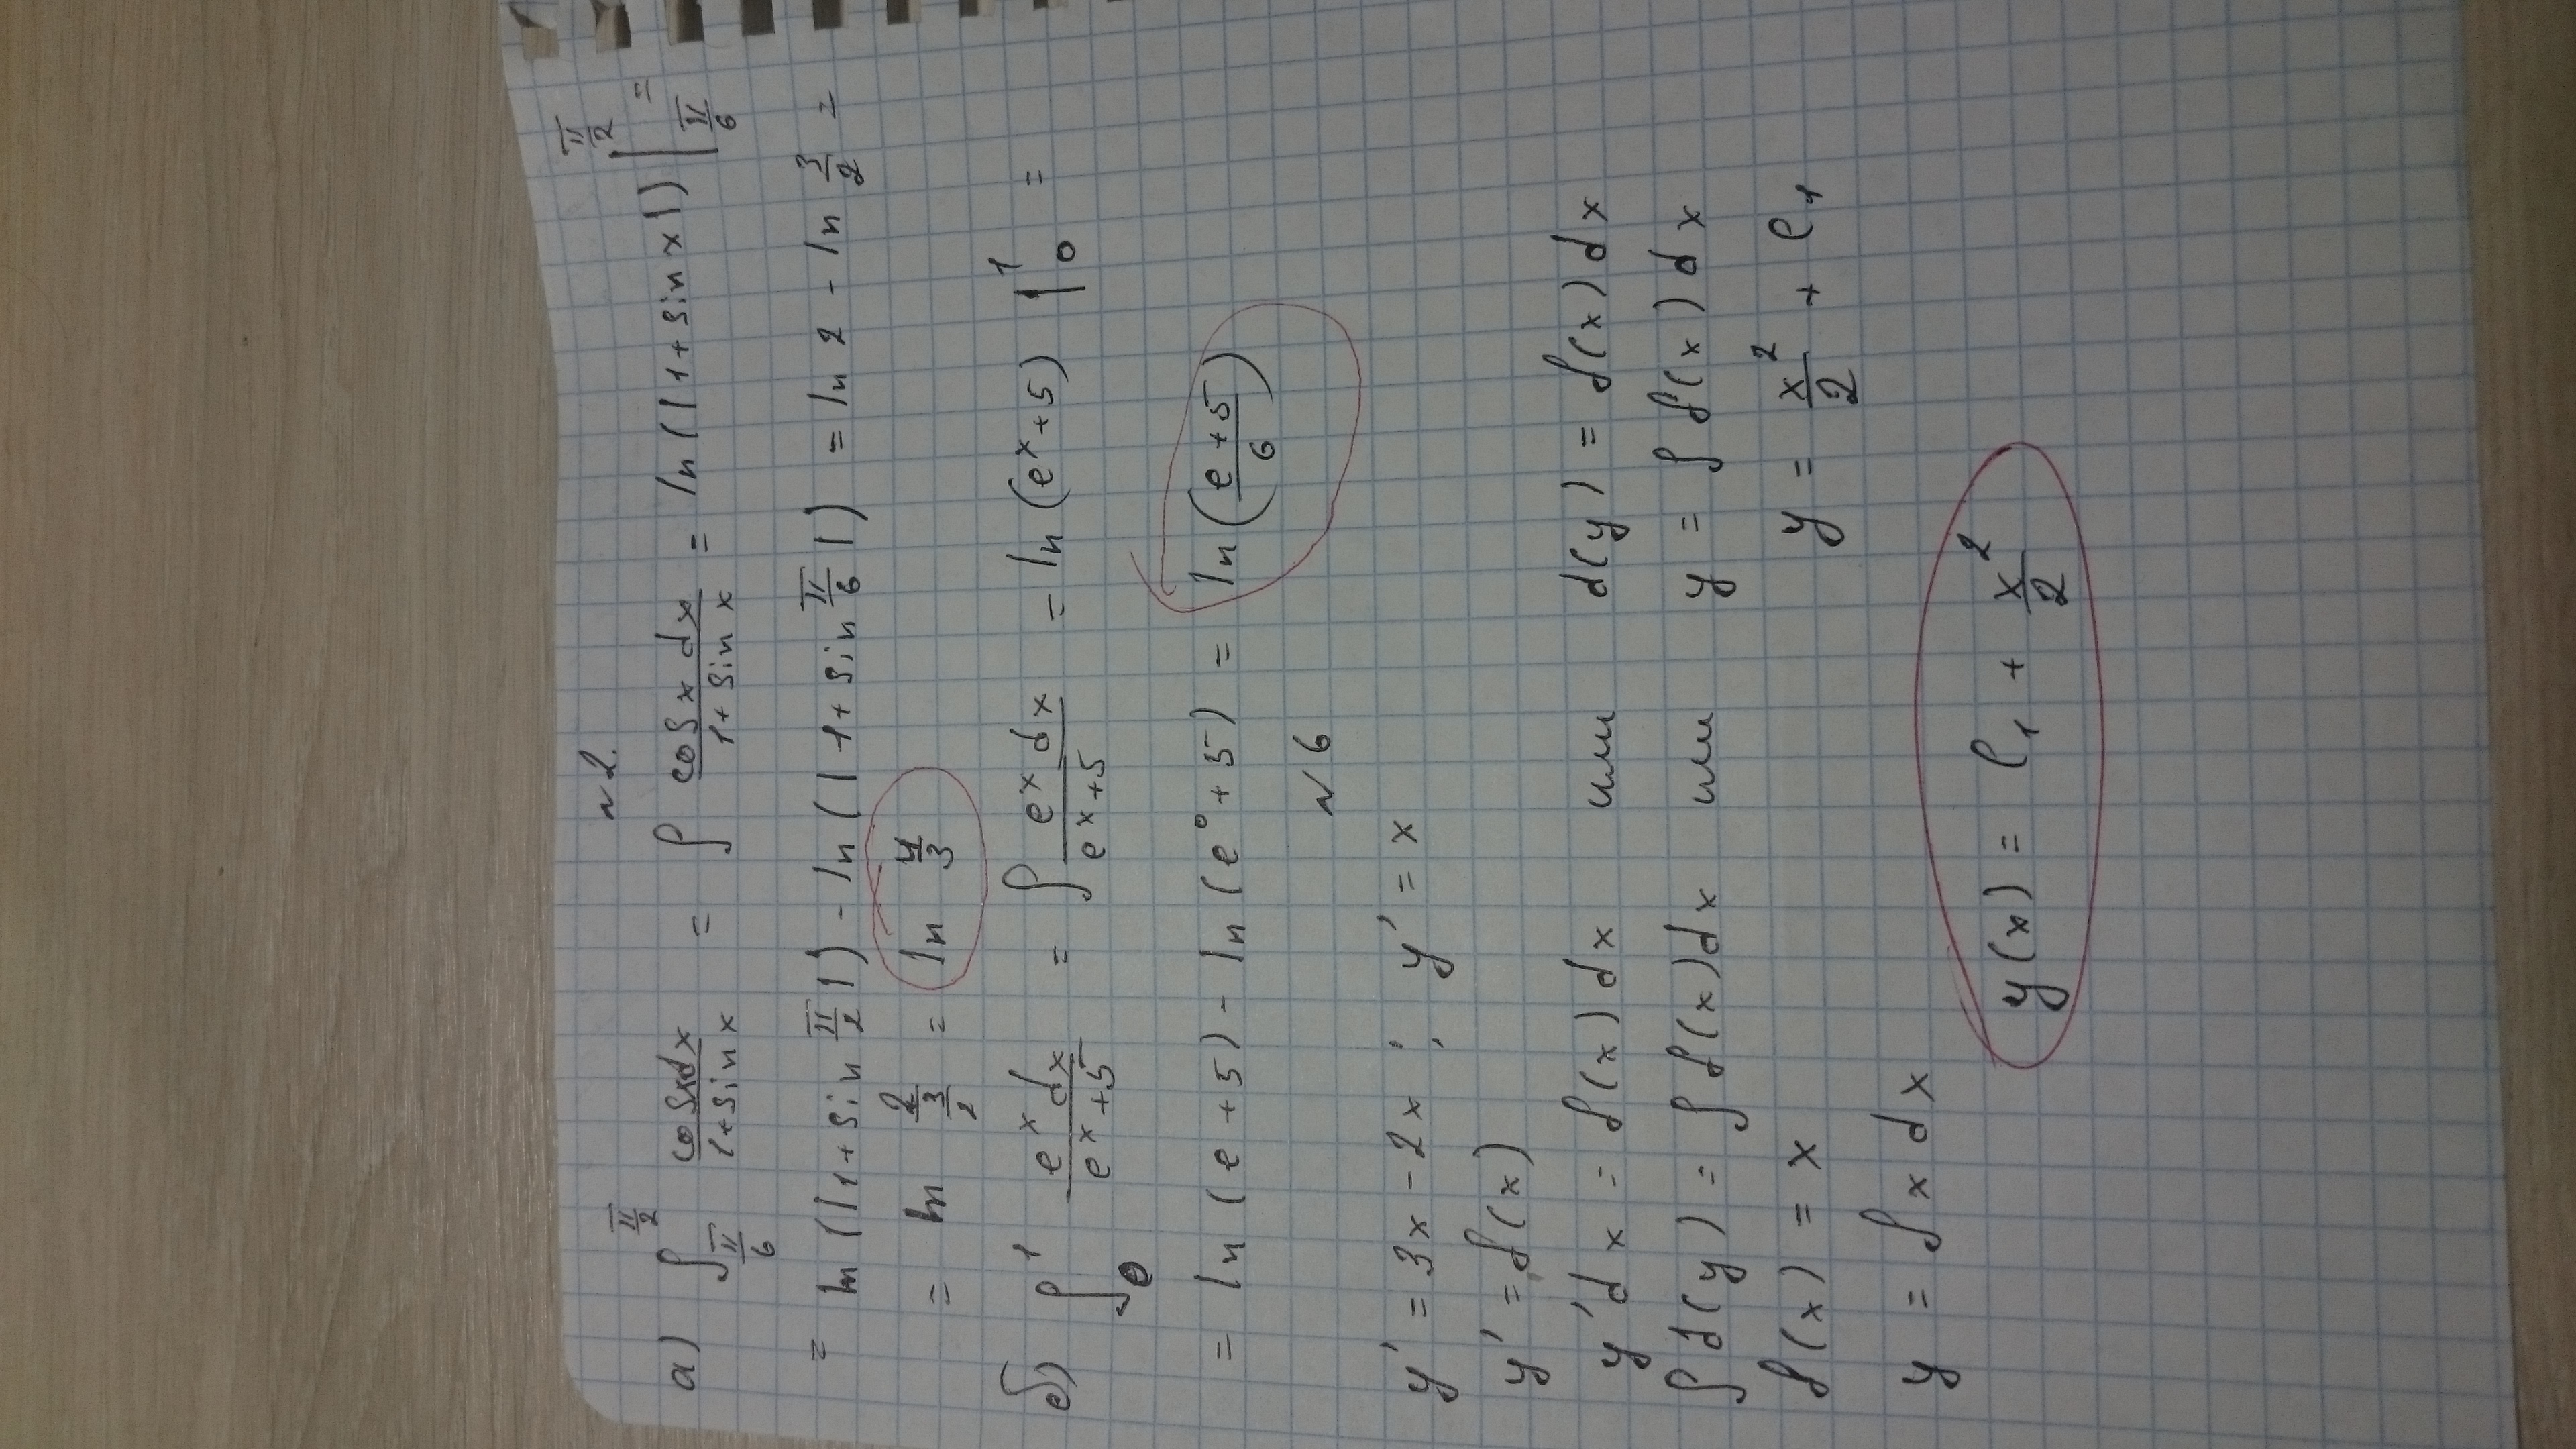 №2.
а) ∫_{π/6}^{π/2} cosxdx/1+sinx = ∫ cosxdx/1+sinx = ln(|1+sinx|)|_{π/6}^{π/2} =
= ln(|1+sin π/2|) - ln(|1+sin π/6|) = ln2 - ln 3/2 =
= ln 2/(3/2) = ln 4/3
б) ∫_0^1 e^x dx/e^x+5 = ∫ e^x dx/e^x+5 = ln(e^x+5)|_0^1 =
= ln(e+5) - ln(e^0+5) = ln(e+5/6)
№6
y' = 3x - 2x ; y' = x
y' = f(x)
y'dx = f(x)dx или d(y) = f(x)dx
∫d(y) = ∫f(x)dx или y = ∫f(x)dx
f(x) = x y = x^2/2 + C_1
y = ∫xdx
y(x) = C_1 + x^2/2